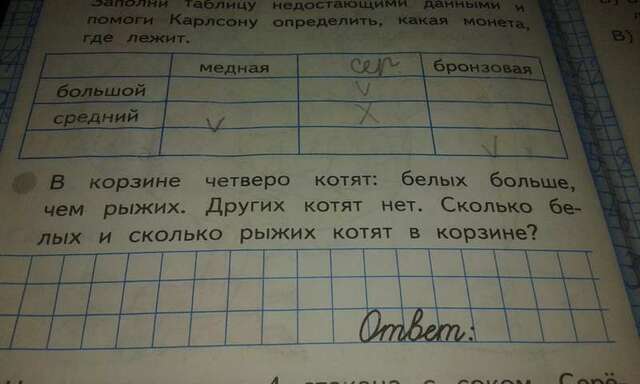 Заполни таблицу недостающими данными и
помоги Карлсону определить, какая монета,
где лежит.
медная сер. бронзовая
большой v
средний v x
v
В корзине четверо котят: белых больше,
чем рыжих. Других котят нет. Сколько бе-
лых и сколько рыжих котят в корзине?
Ответ:
4 стакана с соком. Серё-
В)